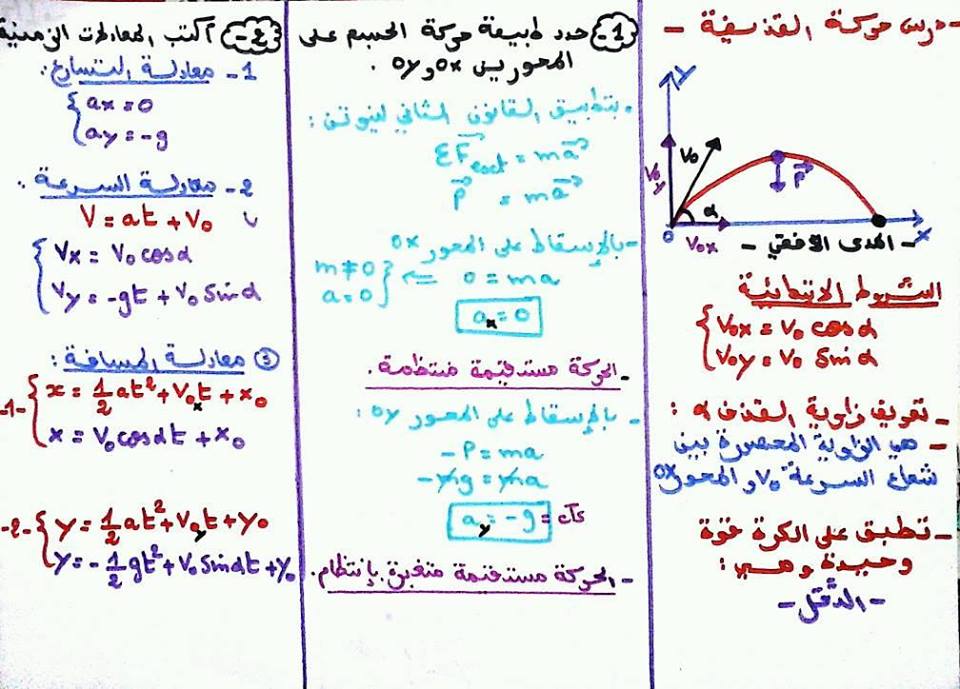 - درس حركة القذيفة -
y
V₀
V₀y
P⃗
α
0
V₀x
x
- المدى الأفقي -
الشروط الابتدائية
V₀x = V₀ cosα
V₀y = V₀ Sinα
- تعريف زاوية القذف α :
- هي الزاوية المحصورة بين
شعاع السرعة V₀ و المحور OX
- تطبق على الكرة قوة
وحيدة و هي :
- الثقل -
1- حدد طبيعة حركة الجسم على
المحورين OX و OY .
- بتطبيق القانون الثاني لنيوتن :
ΣF⃗ext = ma⃗
P⃗ = ma⃗
- بالإسقاط على المحور OX
m≠0
a=0 } ⇐ 0 = ma
aₓ = 0
- الحركة مستقيمة منتظمة .
- بالإسقاط على المحور OY :
-P = ma
-mg = ma
ay = -g = cte
- الحركة مستقيمة متغيرة بإنتظام .
2- أكتب المعادلات الزمنية
1- معادلة التسارع :
ax = 0
ay = -g
2- معادلة السرعة :
V = at + V₀
Vx = V₀ cosα
Vy = -gt + V₀ Sinα
③ معادلة المسافة :
-1- x = ½at² + V₀ₓt + x₀
x = V₀cosαt + x₀
-2- y = ½at² + V₀yt + y₀
y = -½gt² + V₀Sinαt + y₀